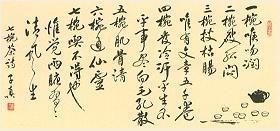 一椀喉吻润
二椀破孤闷
三椀搜枯肠
唯有文字五千卷
四椀发轻汗平生不
平事尽向毛孔散
五椀肌骨清
六椀通仙灵
七椀喫不得也
惟觉两腋习习
清风生
七椀茶诗